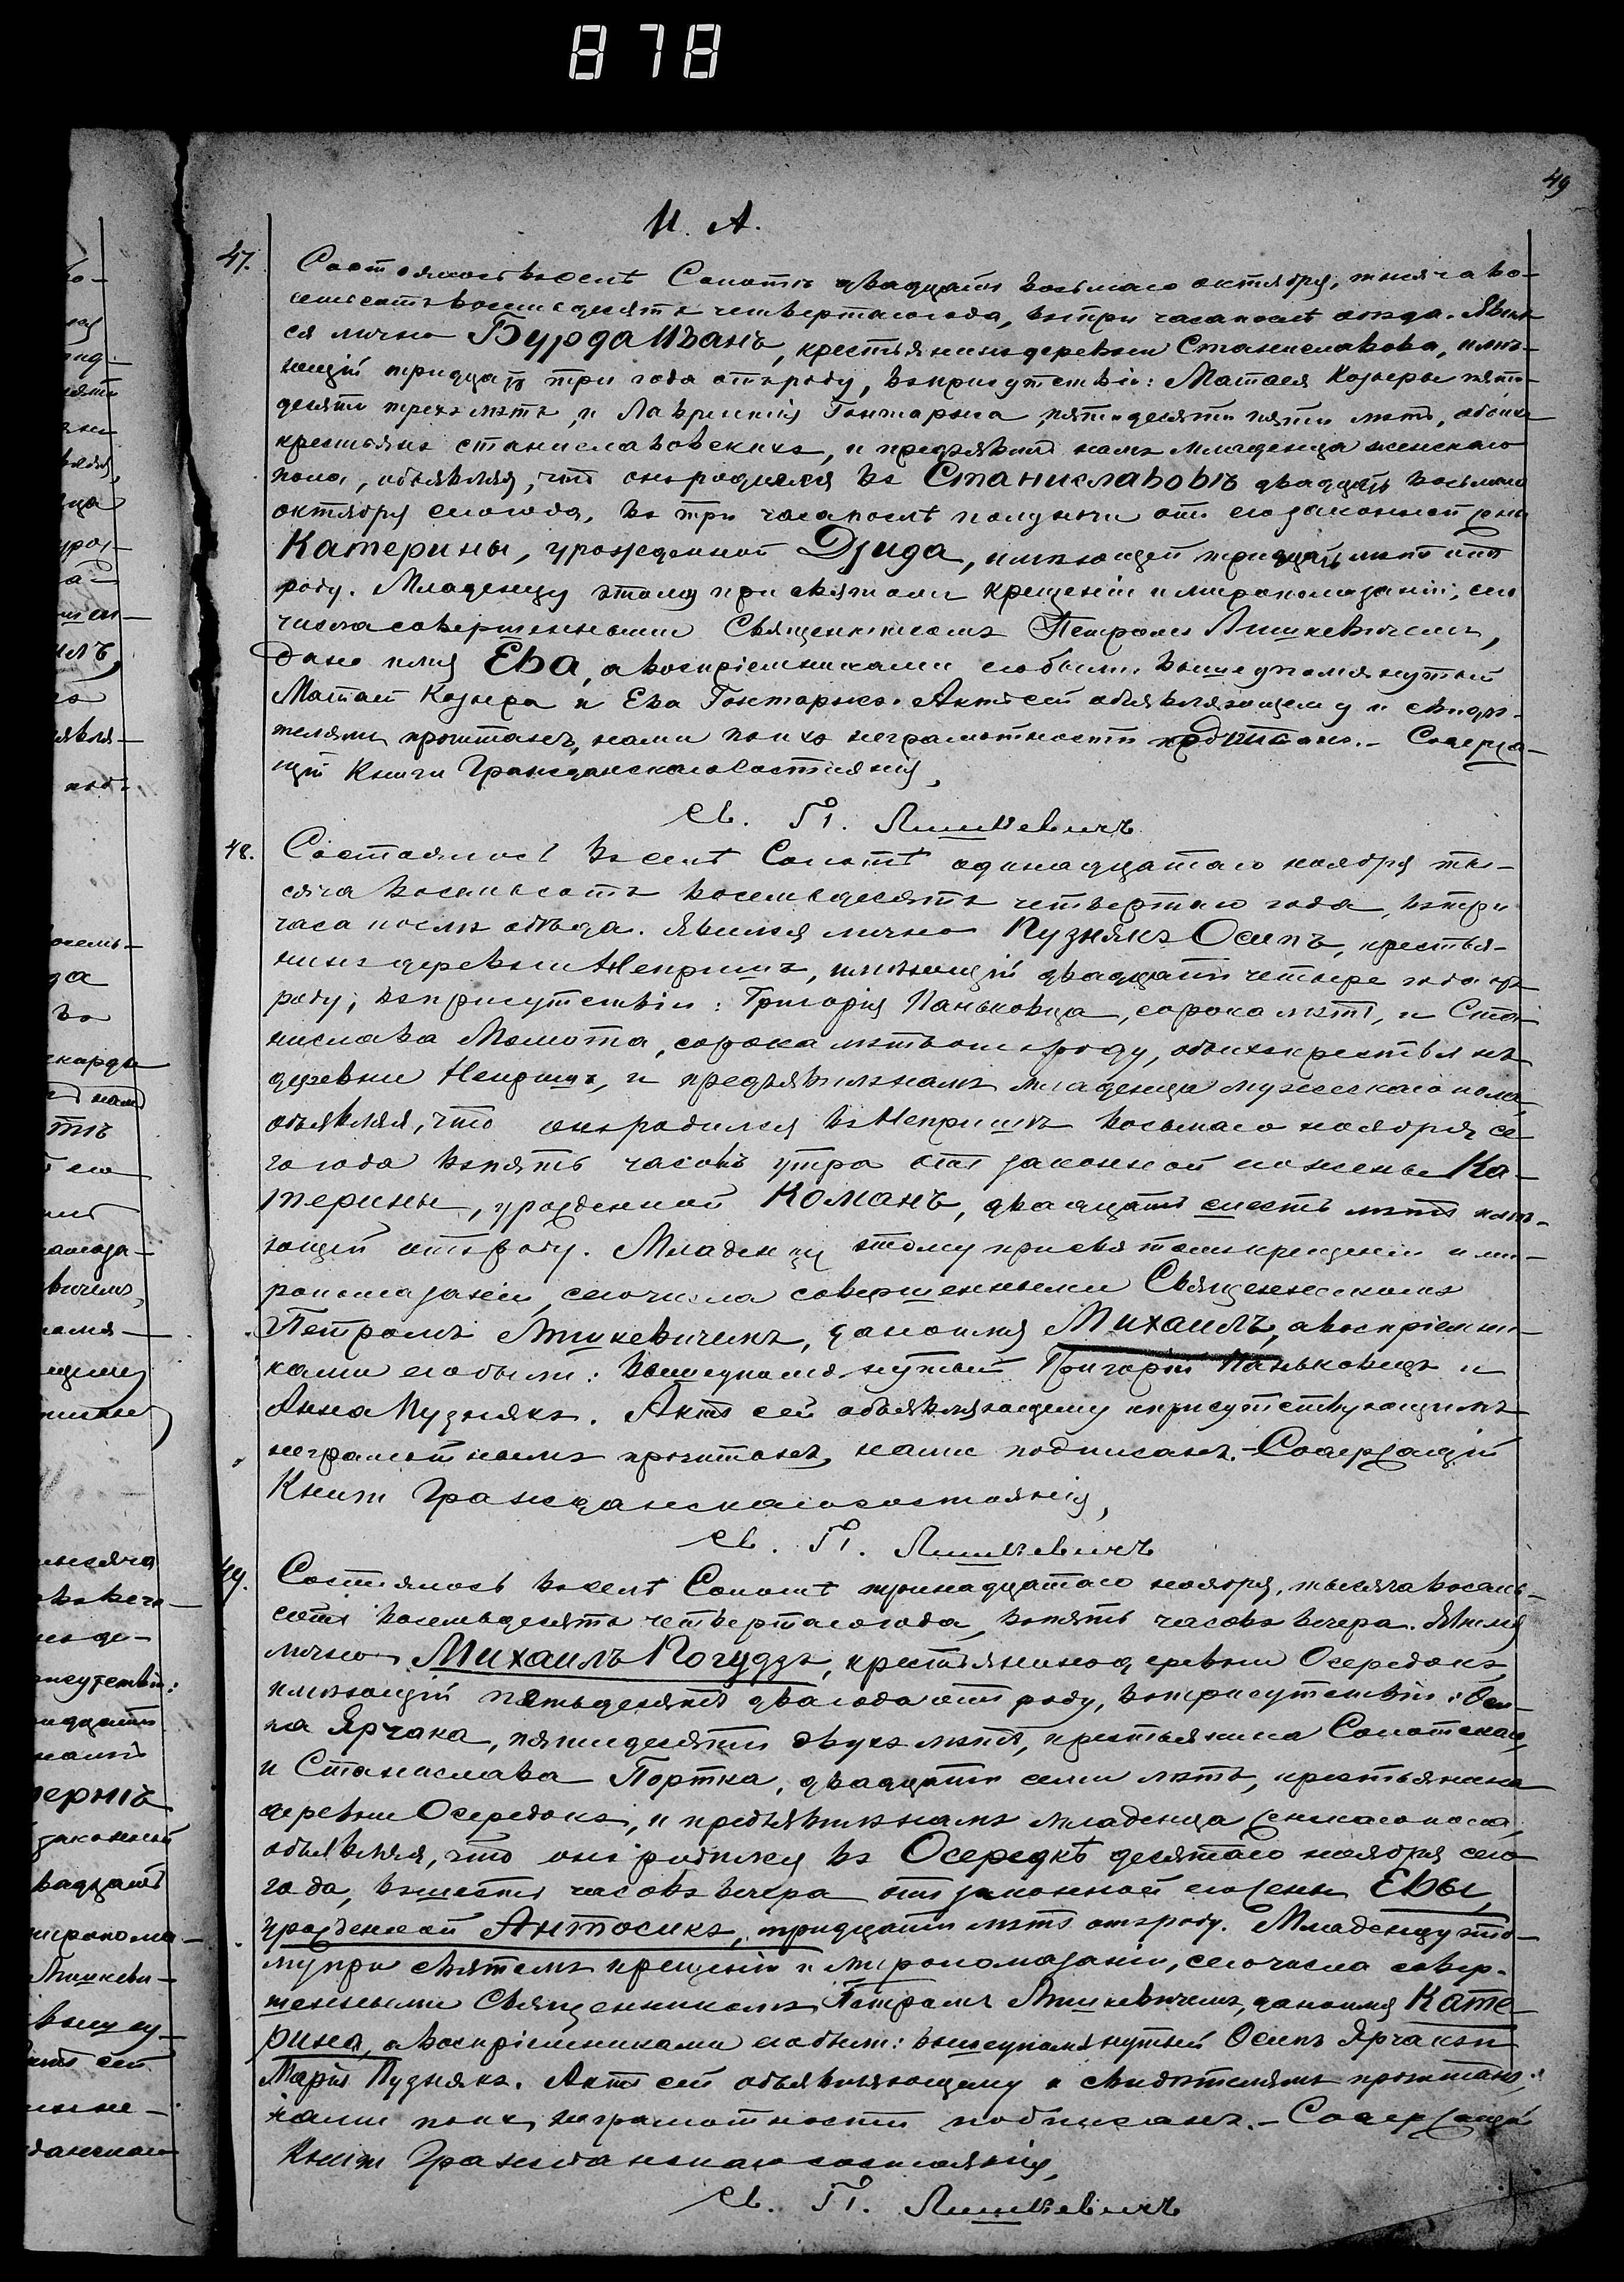 878
49
И. А.
47. Состоялось въ селѣ Сопотъ двадцать восьмаго октября, тысяча во-
семьсотъ восемьдесятъ четвертаго года, въ три часа послѣ обѣда. Явил-
ся лично Бурда Иванъ, крестьянинъ деревни Станиславова, имѣ-
ющій тридцать три года отъ роду, въ присутствіи: Матвея Козыры пяти-
десяти трехъ лѣтъ, и Лаврентія Гонтаржа, пятидесяти пяти лѣтъ, обоихъ
крестьянъ станиславовскихъ, и предъявилъ намъ младенца женскаго
пола, объявляя, что онъ родился въ Станиславовѣ двадцать восьмаго
октября сего года, въ три часа послѣ полуночи отъ его законной жены
Катерины, урожденной Дзида, имѣющей тридцать лѣтъ отъ
роду. Младенцу этому при святомъ крещеніи и миропомазаніи, сего
числа совершенными Священникомъ Петромъ Лишкевичемъ,
дано имя Ева, а воспріемниками его были: вышеупомянутый
Матвей Козыра и Ева Гонтаржъ. Актъ сей объявляющему и свидѣ-
телямъ прочитанъ, нами по ихъ неграмотности подписанъ. - Содержа-
щій Книги Гражданскаго Состоянія,
Св. П. Лишкевичъ
48. Состоялось въ селѣ Сопотѣ одинадцатаго ноября ты-
сяча восемьсотъ восемьдесятъ четвертаго года, въ три
часа послѣ обѣда. Явился лично Пузнякъ Осипъ, крестья-
нинъ деревни Непришъ, имѣющій двадцать четыре года отъ
роду, въ присутствіи: Григорія Паньковца, сорока лѣтъ, и Ста-
нислава Момота, сорока лѣтъ отъ роду, обоихъ крестьянъ
деревни Непришъ, и предъявилъ намъ младенца мужескаго пола,
объявляя, что онъ родился въ Непришѣ восьмаго ноября се-
го года въ пять часовъ утра отъ законной его жены Ка-
терины, урожденной Команъ, двадцать шесть лѣтъ имѣ-
ющей отъ роду. Младенцу этому при святомъ крещеніи и ми-
ропомазаніи, сего числа совершенными Священникомъ
Петромъ Лишкевичемъ, дано имя Михаилъ, а воспріемни-
ками его были: вышеупомянутый Григорій Паньковецъ и
Анна Пузнякъ. Актъ сей объявляющему и присутствующимъ
неграмотнымъ прочитанъ, нами подписанъ. - Содержащій
Книги Гражданскаго состоянія,
Св. П. Лишкевичъ
49. Состоялось въ селѣ Сопотѣ тринадцатаго ноября, тысяча восемь-
сотъ восемьдесятъ четвертаго года, въ пять часовъ вечера. Явился
лично Михаилъ Погудзъ, крестьянинъ деревни Осередокъ,
имѣющій пятьдесятъ два года отъ роду, въ присутствіи: Оси-
па Ярчака, пятидесяти двухъ лѣтъ, крестьянина Сопотскаго,
и Станислава Портка, двадцати семи лѣтъ, крестьянина
деревни Осередокъ, и предъявилъ намъ младенца женскаго пола,
объявляя, что онъ родился въ Осередкѣ десятаго ноября сего
года, въ шесть часовъ вечера отъ законной его жены Евы,
урожденной Антосикъ, тридцати лѣтъ отъ роду. Младенцу это-
му при святомъ крещеніи и миропомазаніи, сего числа совер-
шенными Священникомъ Петромъ Лишкевичемъ, дано имя Кате-
рина, а воспріемниками его были: вышеупомянутый Осипъ Ярчакъ и
Марія Пузнякъ. Актъ сей объявляющему и свидѣтелямъ прочитанъ,
нами по ихъ неграмотности подписанъ. - Содержащій
Книги Гражданскаго состоянія,
Св. П. Лишкевичъ